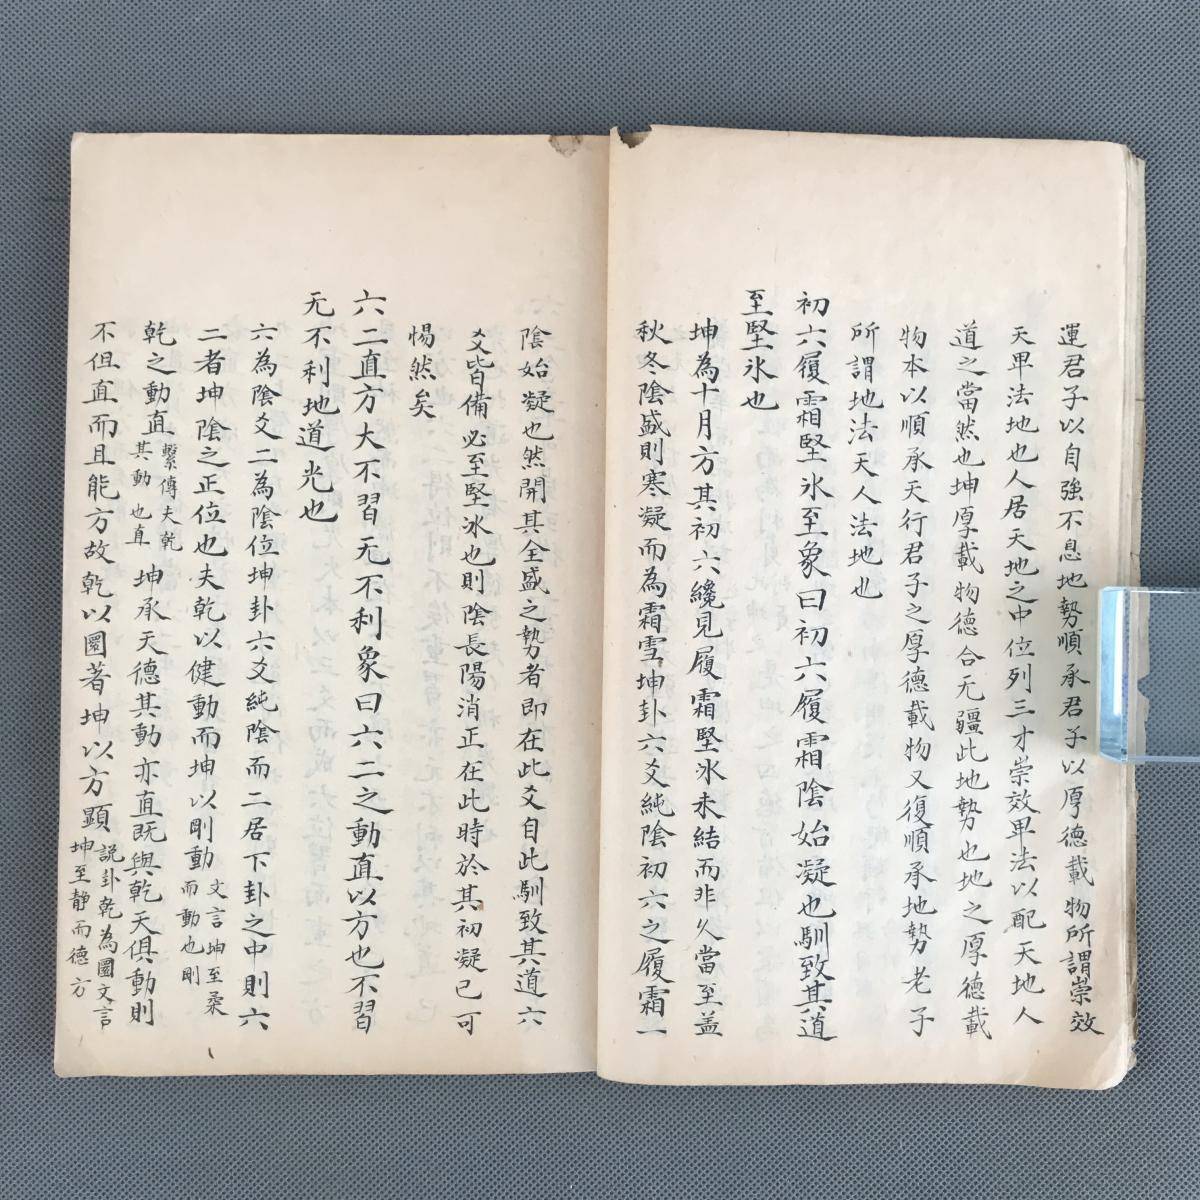 運君子以自強不息地勢順承君子以厚德載物所謂崇效
天卑法地也人居天地之中位列三才崇效卑法以配天地人
道之當然也坤厚載物德合无疆此地勢也地之厚德載
物本以順承天行君子之厚德載物又復順承地勢老子
所謂地法天人法地也
初六履霜堅氷至象曰初六履霜陰始凝也馴致其道
至堅氷也
坤為十月方其初六纔見履霜堅氷未結而非久當至盖
秋冬陰盛則寒凝而為霜雪坤卦六爻純陰初六之履霜一
陰始凝也然開其全盛之勢者即在此爻自此馴致其道六
爻皆備必至堅氷也則陰長陽消正在此時於其初凝已可
惕然矣
六二直方大不習无不利象曰六二之動直以方也不習
无不利地道光也
六為陰爻二為陰位坤卦六爻純陰而二居下卦之中則六
二者坤陰之正位也夫乾以健動而坤以剛動文言坤至柔而動也剛
乾之動直繫傳夫乾其動也直坤承天德其動亦直既與乾天俱動則
不但直而且能方故乾以圜著坤以方顯說卦乾為圜文言坤至静而德方